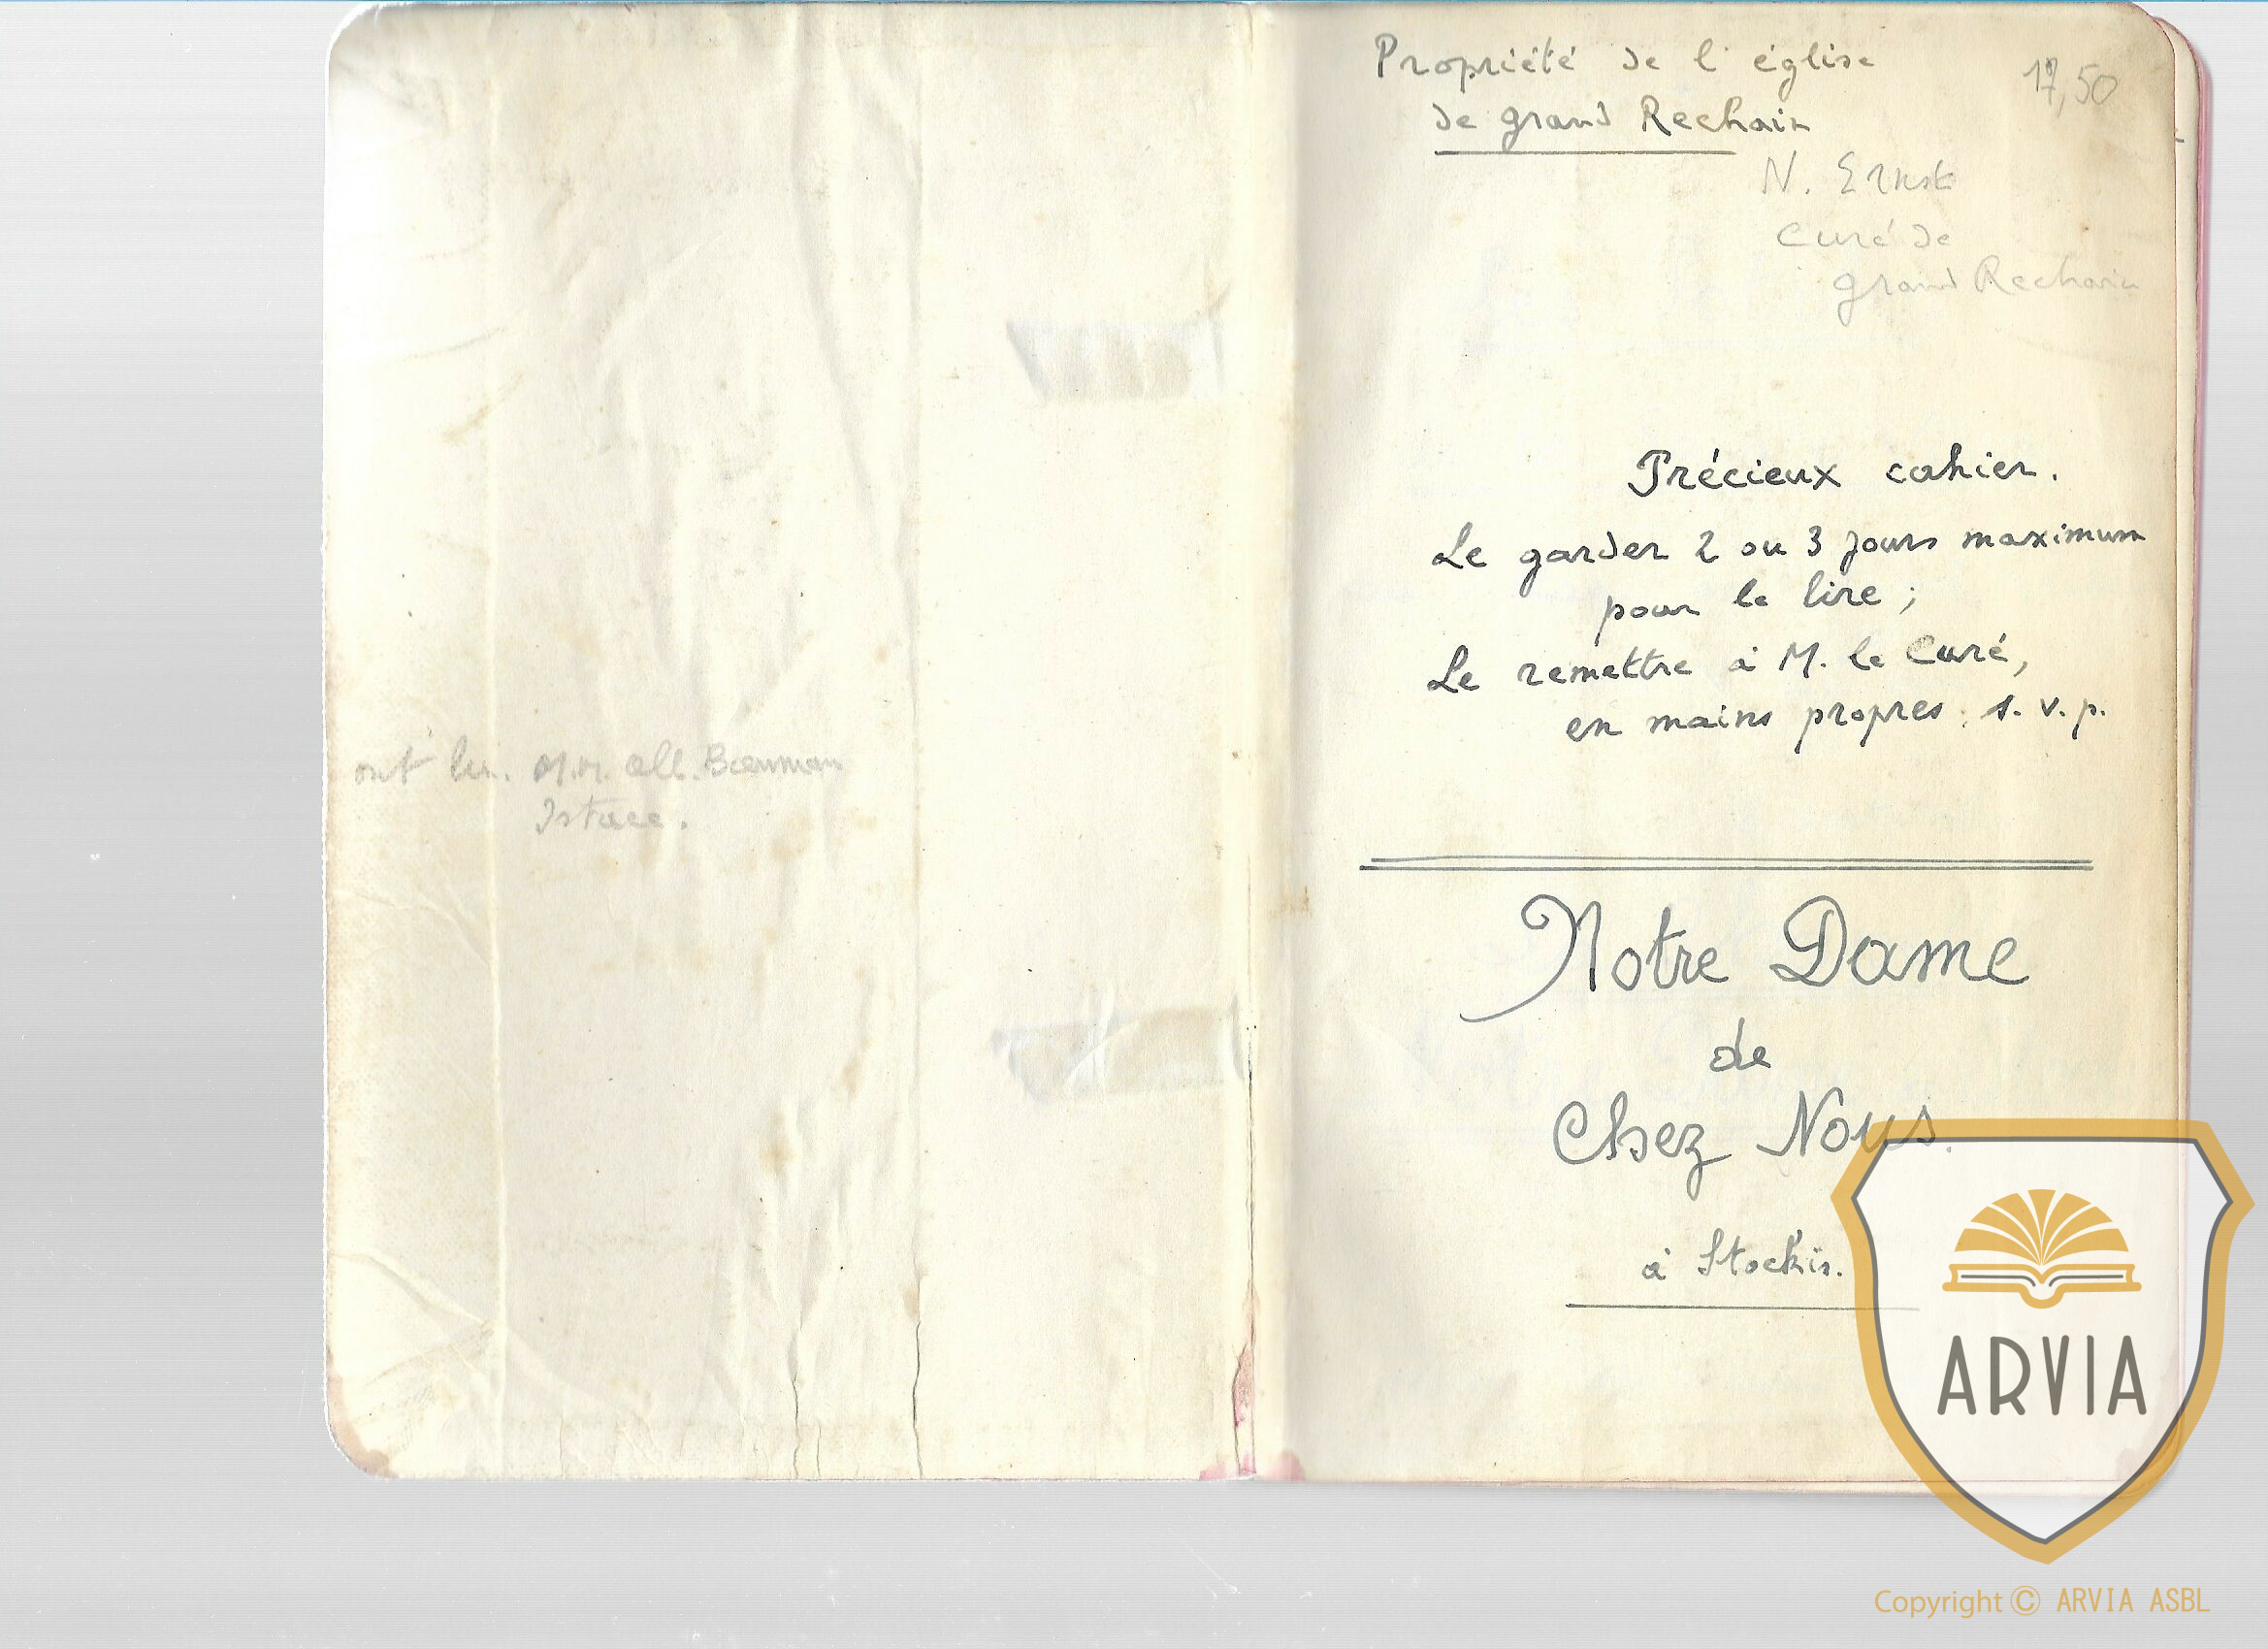 ont lu. M.M. all. Baeuman
Istace.
Propriété de l'église
de grand Rechain
17,50
N. Ernst
Curé de
grand Rechain
Précieux cahier.
Le garder 2 ou 3 jours maximum
pour le lire ;
Le remettre à M. le Curé,
en mains propres. s. v. p.
Notre Dame
de
Chez Nous.
à Stockis.
ARVIA
Copyright © ARVIA ASBL